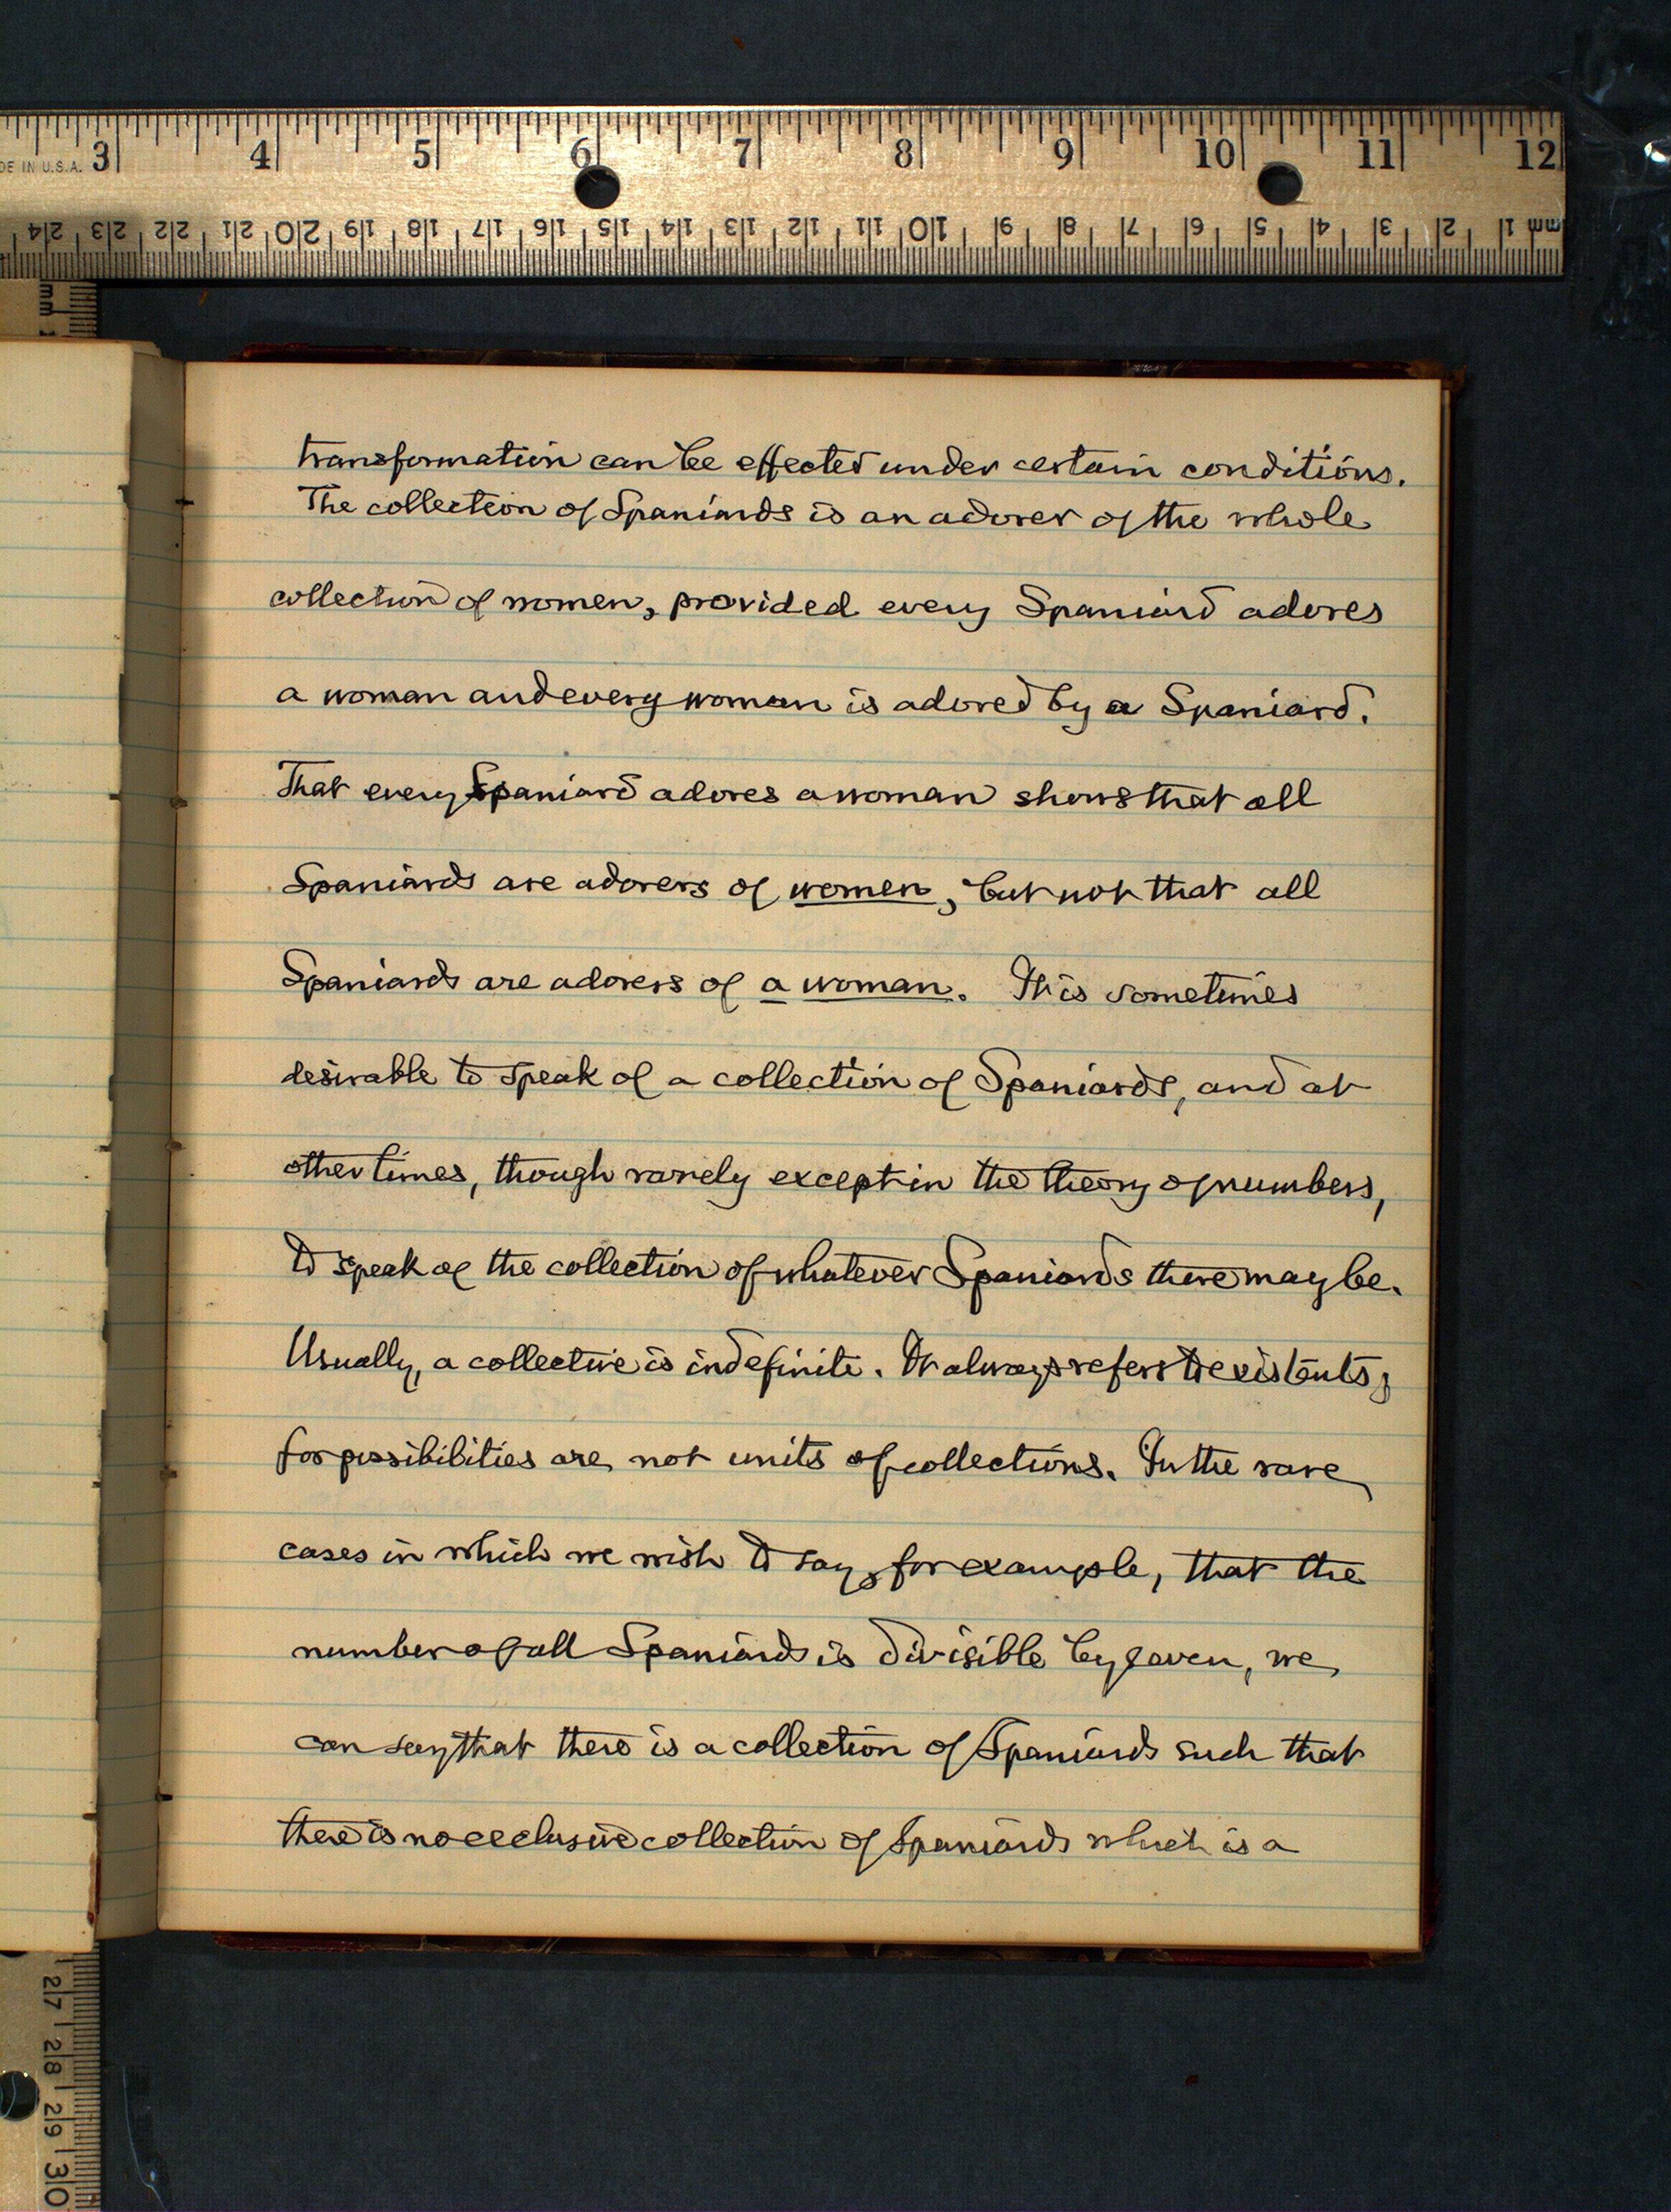 DE IN U.S.A. 3 4 5 6 7 8 9 10 11 12
24 23 22 21 20 19 18 17 16 15 14 13 12 11 10 9 8 7 6 5 4 3 2 1 mm
mm
transformation can be effected under certain conditions.
The collection of Spaniards is an adorer of the whole
collection of women, provided every Spaniard adores
a woman and every woman is adored by a Spaniard.
That every Spaniard adores a woman shows that all
Spaniards are adorers of women, but not that all
Spaniards are adorers of a woman. It is sometimes
desirable to speak of a collection of Spaniards, and at
other times, though rarely except in the theory of numbers,
to speak of the collection of whatever Spaniards there may be.
Usually, a collective is indefinite. It always refers to existents;
for possibilities are not units of collections. In the rare
cases in which we wish to say, for example, that the
number of all Spaniards is divisible by seven, we
can say that there is a collection of Spaniards such that
there is no exclusive collection of Spaniards which is a
27 28 29 30